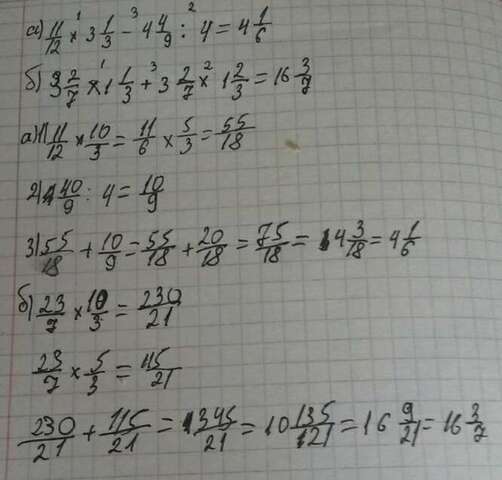 а) 11/12 × 3 1/3 - 4 4/9 : 4 = 4 1/6
б) 3 2/7 × 1 1/3 + 3 2/7 × 1 2/3 = 16 3/7
а) 1) 11/12 × 10/3 = 11/6 × 5/3 = 55/18
2) 40/9 : 4 = 10/9
3) 55/18 + 10/9 = 55/18 + 20/18 = 75/18 = 4 3/18 = 4 1/6
б) 23/7 × 10/3 = 230/21
23/7 × 5/3 = 115/21
230/21 + 115/21 = 345/21 = 10 135/21 = 16 9/21 = 16 3/7